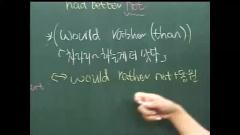 had better not
*(would rather (than))
차라리 ~하는게 더 낫다
↔ would rather not + 동원